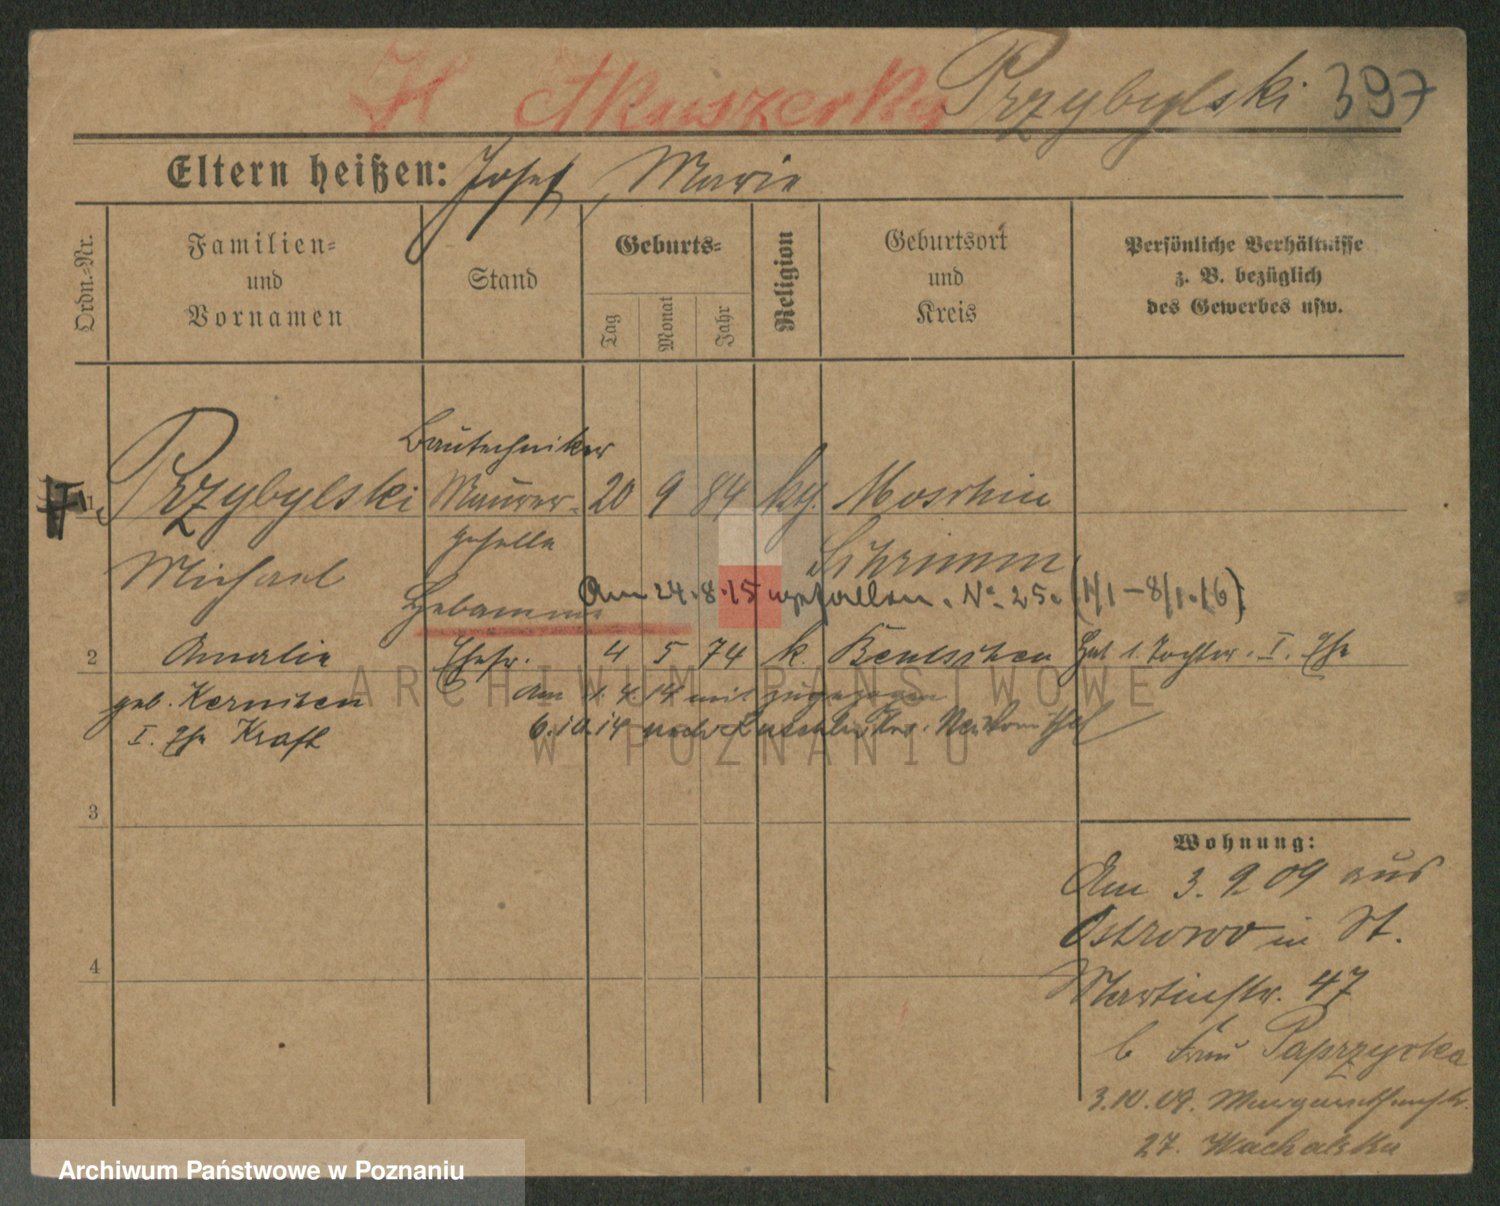 H Akuszerka Przybylski 397
Eltern heißen: Josef, Marie
Ordn.-Nr.
Familien-
und
Vornamen
Stand
Geburts-
Tag
Monat
Jahr
Religion
Geburtsort
und
Kreis
Persönliche Verhältnisse
z. B. bezüglich
des Gewerbes usw.
Bautechniker
1 Przybylski Maurer- 20 9 84 kg. Moschin
Michael geselle Schrimm
Hebamme Am 24.8.15 gefallen. No. 25. (1/1-8/1.16)
2 Amalie Ehefr. 4 5 74 k. Bentschen Hat 1. Tochter. I. Ehe
geb. Am 1.4.14 mit zugezogen
I. Ehe Kraft 6.10.14 nach
3
4
Wohnung:
Am 3.9.09 aus
Ostrowo in St.
Martinstr. 47
b Frau Paprzycka
3.10.09. Margarethenstr.
27. Wachalska
ARCHIWUM PAŃSTWOWE
W POZNANIU
Archiwum Państwowe w Poznaniu